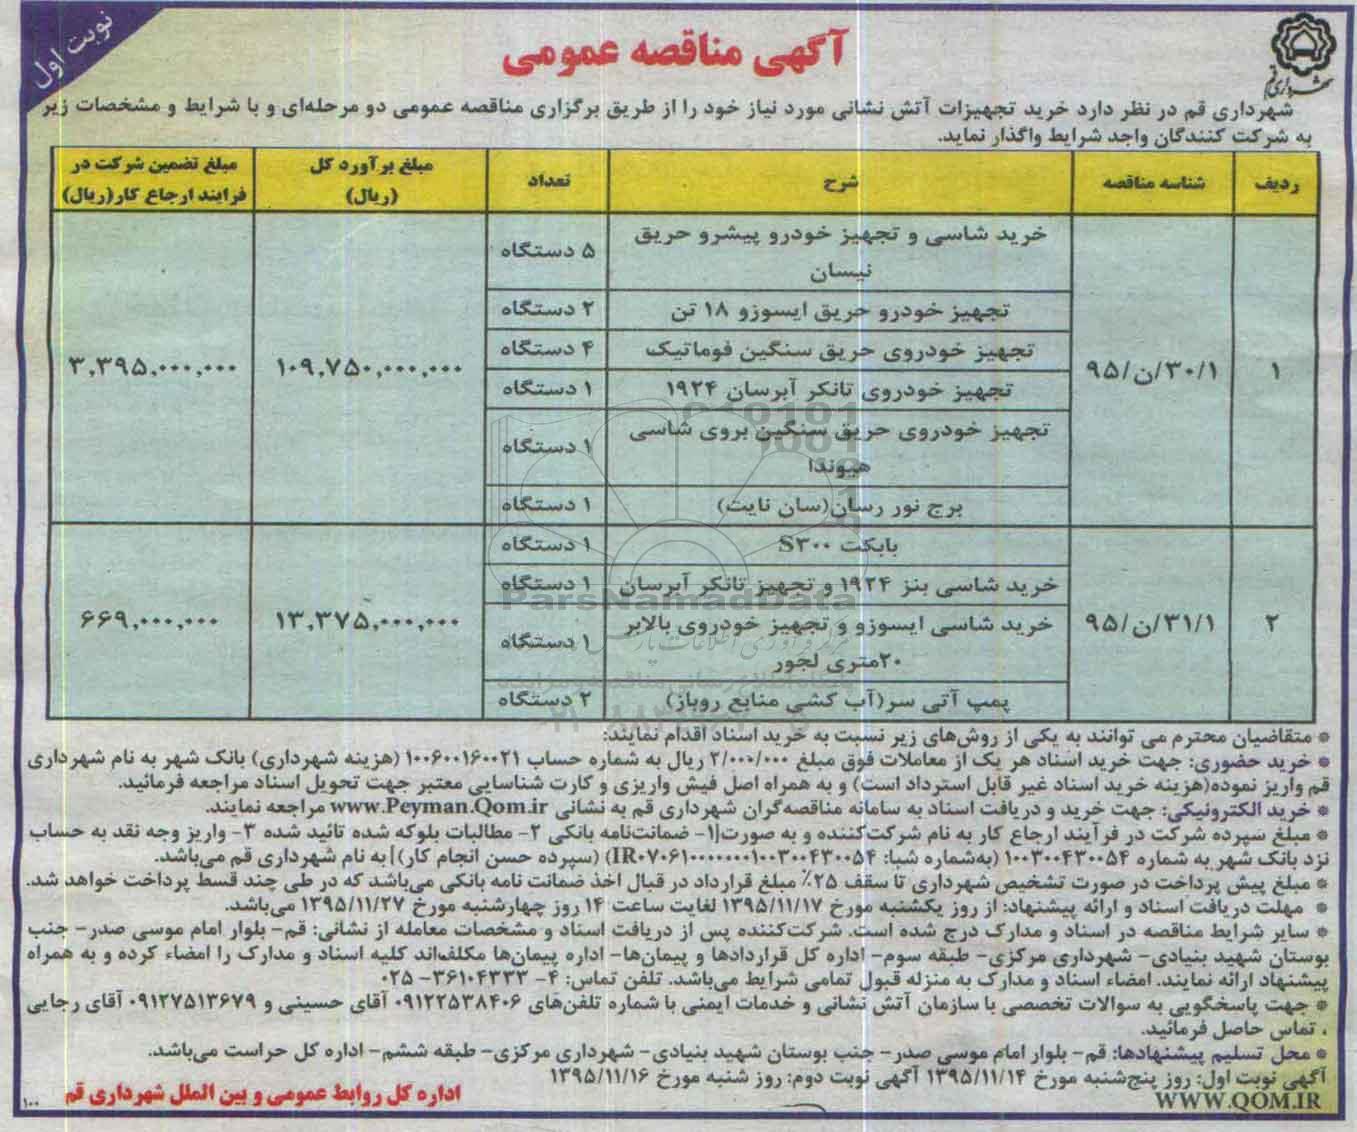 نوبت اول
شهرداری قم
آگهی مناقصه عمومی
شهرداری قم در نظر دارد خرید تجهیزات آتش نشانی مورد نیاز خود را از طریق برگزاری مناقصه عمومی دو مرحله‌ای و با شرایط و مشخصات زیر
به شرکت کنندگان واجد شرایط واگذار نماید.
ردیف شناسه مناقصه شرح تعداد مبلغ برآورد کل (ریال) مبلغ تضمین شرکت در فرایند ارجاع کار(ریال)
۱ ۹۵/ن/۳۰/۱ ۱۰۹,۷۵۰,۰۰۰,۰۰۰ ۳,۳۹۵,۰۰۰,۰۰۰
خرید شاسی و تجهیز خودرو پیشرو حریق
نیسان ۵ دستگاه
تجهیز خودرو حریق ایسوزو ۱۸ تن ۲ دستگاه
تجهیز خودروی حریق سنگین فوماتیک ۴ دستگاه
تجهیز خودروی تانکر آبرسان ۱۹۲۴ ۱ دستگاه
تجهیز خودروی حریق سنگین بروی شاسی
هیوندا ۱ دستگاه
برج نور رسان(سان نایت) ۱ دستگاه
۲ ۹۵/ن/۳۱/۱ ۱۳,۳۷۵,۰۰۰,۰۰۰ ۶۶۹,۰۰۰,۰۰۰
بابکت S۳۰۰ ۱ دستگاه
خرید شاسی بنز ۱۹۲۴ و تجهیز تانکر آبرسان ۱ دستگاه
خرید شاسی ایسوزو و تجهیز خودروی بالابر
۲۰متری لجور ۱ دستگاه
پمپ آتی سر(آب کشی منابع روباز) ۲ دستگاه
ParsNamadData
* متقاضیان محترم می توانند به یکی از روش‌های زیر نسبت به خرید اسناد اقدام نمایند:
* خرید حضوری: جهت خرید اسناد هر یک از معاملات فوق مبلغ ۲/۰۰۰/۰۰۰ ریال به شماره حساب ۱۰۰۶۰۰۱۶۰۰۲۱ (هزینه شهرداری) بانک شهر به نام شهرداری
قم واریز نموده(هزینه خرید اسناد غیر قابل استرداد است) و به همراه اصل فیش واریزی و کارت شناسایی معتبر جهت تحویل اسناد مراجعه فرمائید.
* خرید الکترونیکی: جهت خرید و دریافت اسناد به سامانه مناقصه‌گران شهرداری قم به نشانی www.Peyman.Qom.ir مراجعه نمایند.
* مبلغ سپرده شرکت در فرآیند ارجاع کار به نام شرکت‌کننده و به صورت[۱- ضمانت‌نامه بانکی ۲- مطالبات بلوکه شده تائید شده ۳- واریز وجه نقد به حساب
نزد بانک شهر به شماره ۱۰۰۳۰۰۴۳۰۰۵۴ (به‌شماره شبا: IR۰۷۰۶۱۰۰۰۰۰۰۰۱۰۰۳۰۰۴۳۰۰۵۴) (سپرده حسن انجام کار)] به نام شهرداری قم می‌باشد.
* مبلغ پیش پرداخت در صورت تشخیص شهرداری تا سقف ۲۵٪ مبلغ قرارداد در قبال اخذ ضمانت نامه بانکی می‌باشد که در طی چند قسط پرداخت خواهد شد.
* مهلت دریافت اسناد و ارائه پیشنهاد: از روز یکشنبه مورخ ۱۳۹۵/۱۱/۱۷ لغایت ساعت ۱۴ روز چهارشنبه مورخ ۱۳۹۵/۱۱/۲۷ می‌باشد.
* سایر شرایط مناقصه در اسناد و مدارک درج شده است. شرکت‌کننده پس از دریافت اسناد و مشخصات معامله از نشانی: قم- بلوار امام موسی صدر- جنب
بوستان شهید بنیادی- شهرداری مرکزی- طبقه سوم- اداره کل قراردادها و پیمان‌ها- اداره پیمان‌ها مکلف‌اند کلیه اسناد و مدارک را امضاء کرده و به همراه
پیشنهاد ارائه نمایند. امضاء اسناد و مدارک به منزله قبول تمامی شرایط می‌باشد. تلفن تماس: ۴- ۳۶۱۰۴۳۳۳- ۰۲۵
* جهت پاسخگویی به سوالات تخصصی با سازمان آتش نشانی و خدمات ایمنی با شماره تلفن‌های ۰۹۱۲۲۵۳۸۴۰۶ آقای حسینی و ۰۹۱۲۷۵۱۳۶۷۹ آقای رجایی
، تماس حاصل فرمائید.
* محل تسلیم پیشنهادها: قم- بلوار امام موسی صدر- جنب بوستان شهید بنیادی- شهرداری مرکزی- طبقه ششم- اداره کل حراست می‌باشد.
آگهی نوبت اول: روز پنج‌شنبه مورخ ۱۳۹۵/۱۱/۱۴ آگهی نوبت دوم: روز شنبه مورخ ۱۳۹۵/۱۱/۱۶
WWW.QOM.IR
اداره کل روابط عمومی و بین الملل شهرداری قم
۱۰۰